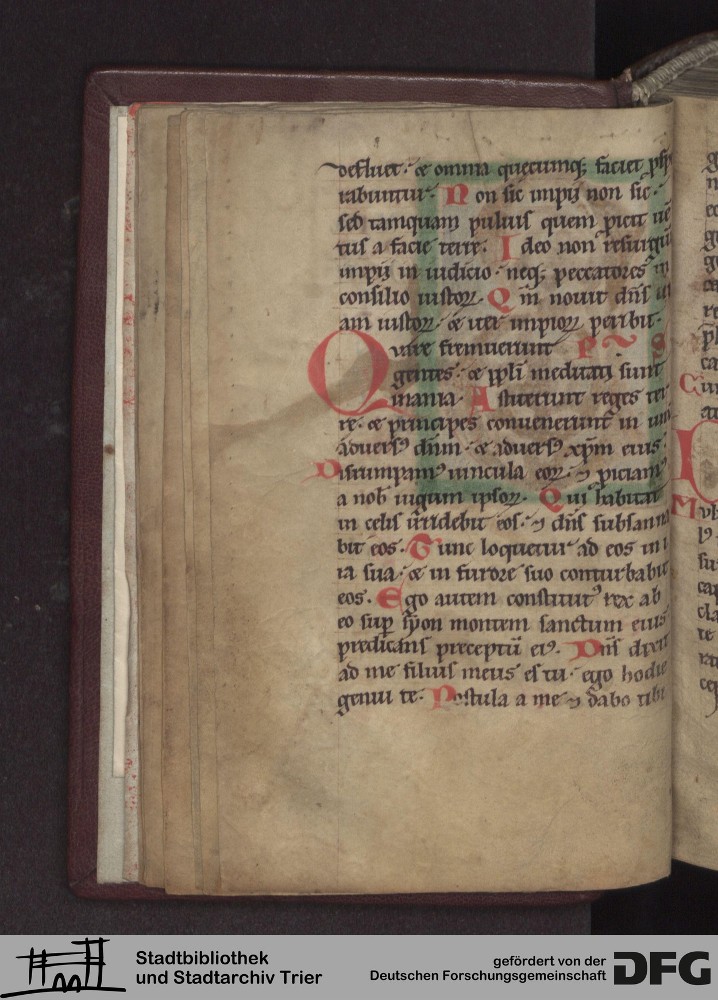 defluet · et omnia quecumq; faciet psp
rabuntur · Non sic impij non sic ·
sed tamquam puluis quem picit uē
tus a facie terre · Ideo non resurgūt
impij in iudicio · neq; peccatores in
consilio iustoꝝ · Qm̄ nouit dn̄s ui
am iustoꝝ · et iter impioꝝ peribit ·
Quare fremuerunt
gentes · et ppl̄i meditati sunt
inania · Astiterunt reges ter
re · et principes conuenerunt in unū
aduersꝰ dn̄m · et aduersꝰ xp̄m eius ·
Disrumpamꝰ uincula eoꝝ · ⁊ piciamꝰ
a nob̄ iugum ipsoꝝ · Qui habitat
in celis irridebit eos · ⁊ dn̄s subsanna
bit eos · Tunc loquetur ad eos in i
ra sua · et in furore suo conturbabit
eos · Ego autem constitutꝰ rex ab
eo sup syon montem sanctum eius
predicans preceptū eiꝰ · Dn̄s dixit
ad me filius meus es tu · ego hodie
genui te · Postula a me ⁊ dabo tibi
Stadtbibliothek
und Stadtarchiv Trier
gefördert von der
Deutschen Forschungsgemeinschaft
DFG